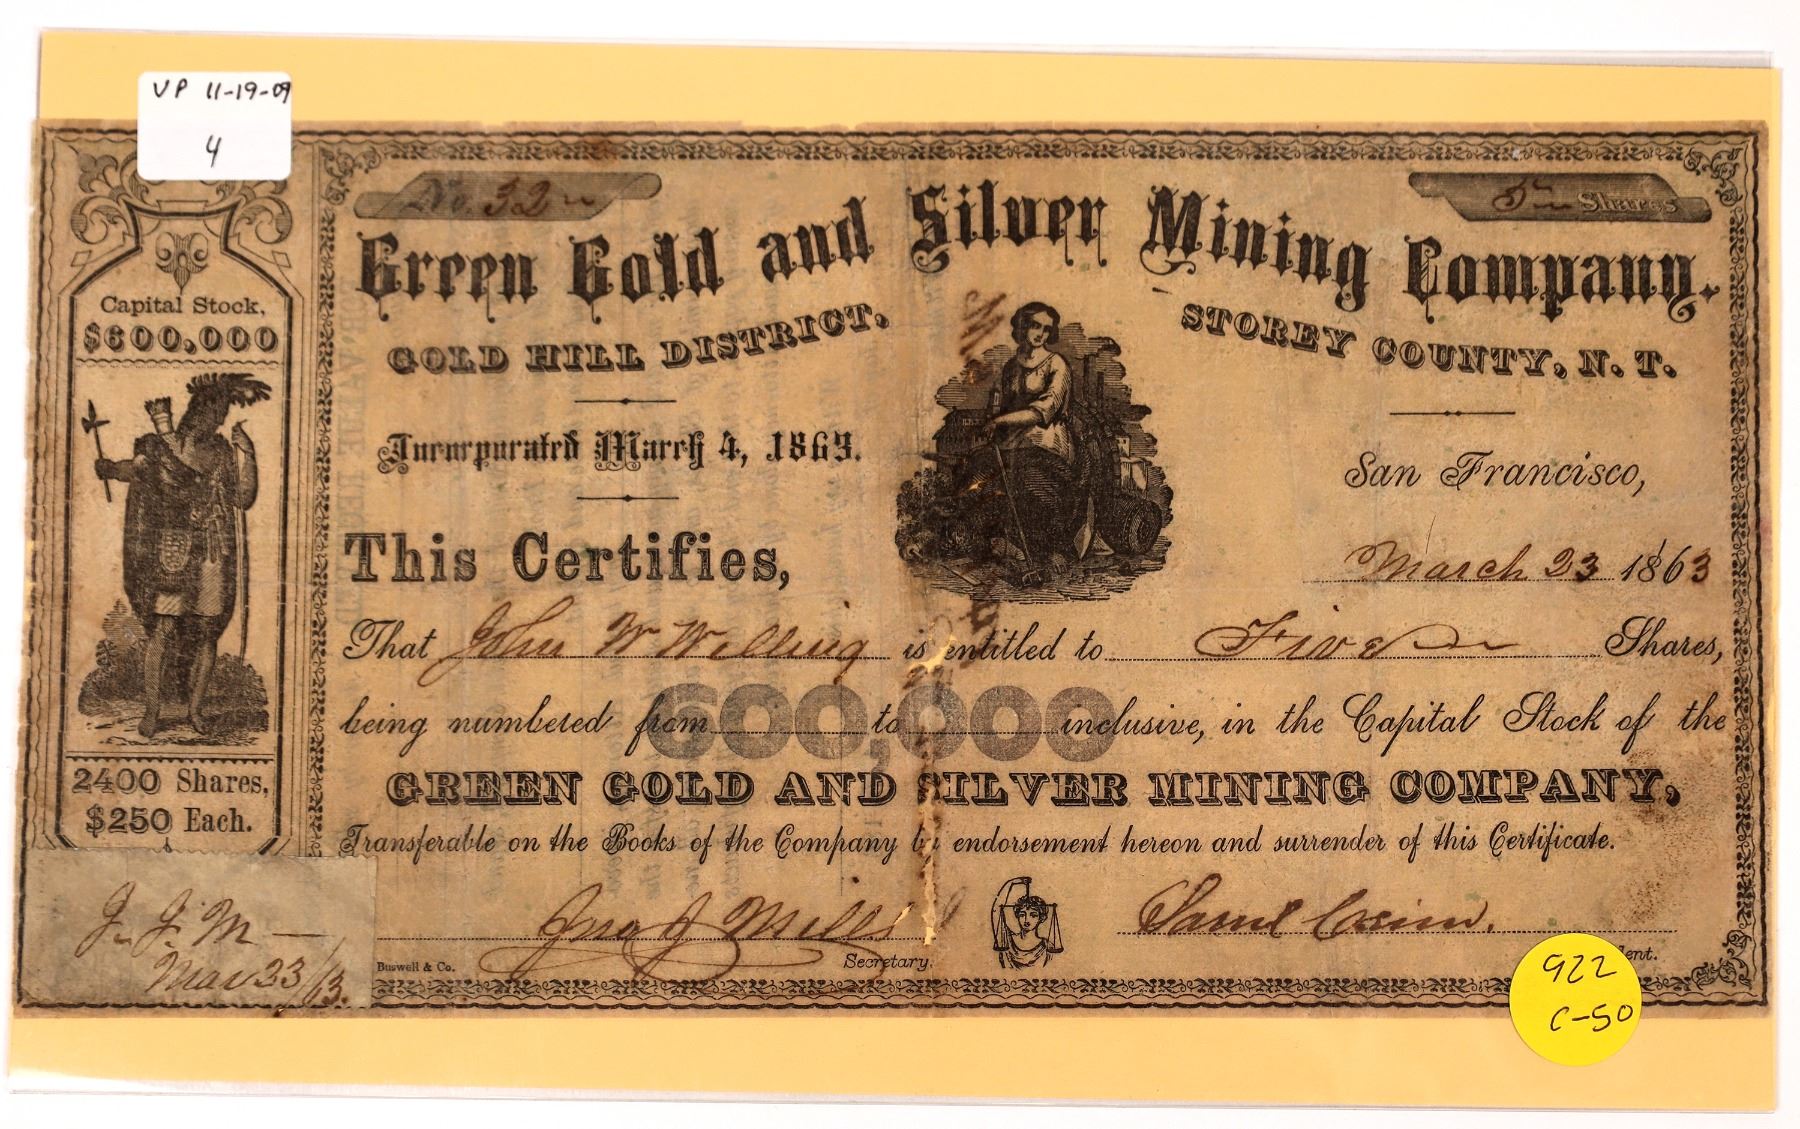 VP 11-19-09
4
No. 32
5 Shares
Green Gold and Silver Mining Company.
GOLD HILL DISTRICT,
STOREY COUNTY, N. T.
Capital Stock,
$600,000
Incorporated March 4, 1863.
San Francisco,
March 23 1863
This Certifies,
That John W Welling is entitled to Five Shares,
being numbered from to inclusive, in the Capital Stock of the
600,000
GREEN GOLD AND SILVER MINING COMPANY,
2400 Shares,
$250 Each.
Transferable on the Books of the Company by endorsement hereon and surrender of this Certificate.
J. J. M
Mar 23/63.
Jno J Mills
Buswell & Co.
Secretary.
Saml
ent.
922
C-50